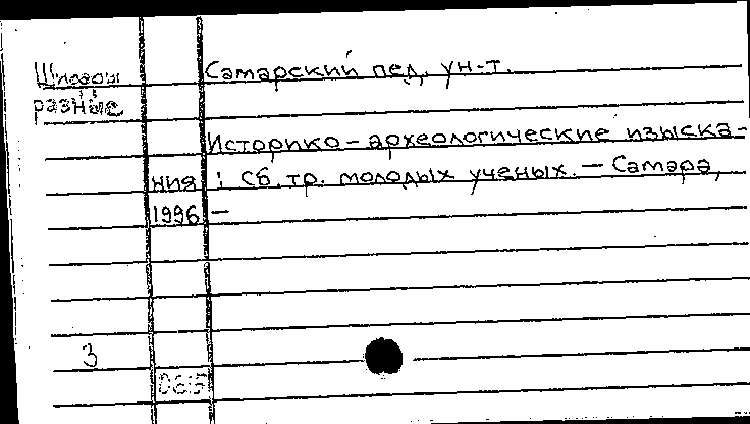 Шифры
разные
Самарский пед. ун-т.
Историко-археологические изыска-
ния : Сб. тр. молодых ученых. — Самара,
1996 —
3